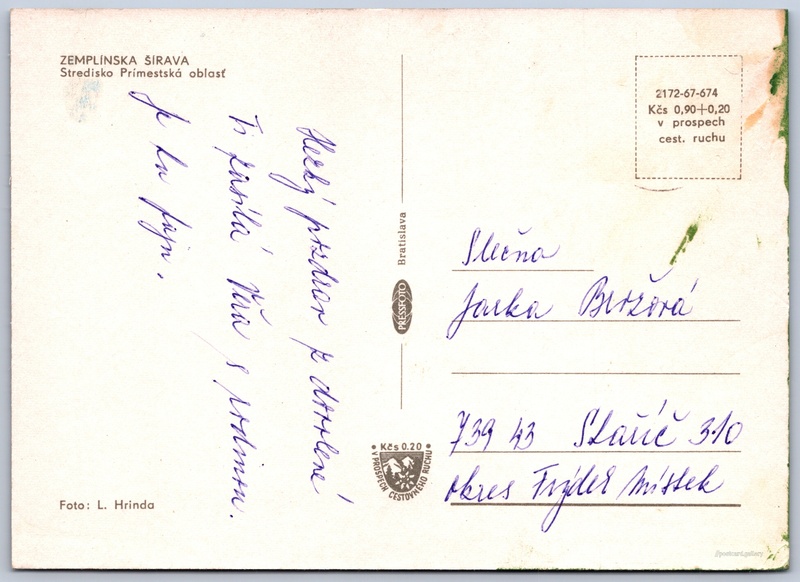 ZEMPLÍNSKA ŠÍRAVA
Stredisko Prímestská oblasť
Hezký pozdrav z dovolené
Ti zasílá Věra s rodinou.
Je tu fajn.
Foto: L. Hrinda
Bratislava
PRESSFOTO
Kčs 0.20
V PROSPECH CESTOVNÉHO RUCHU
2172-67-674
Kčs 0,90+0,20
v prospech
cest. ruchu
Slečna
Jarka
739 43 Staříč 310
okres Frýdek Místek
//postcard.gallery